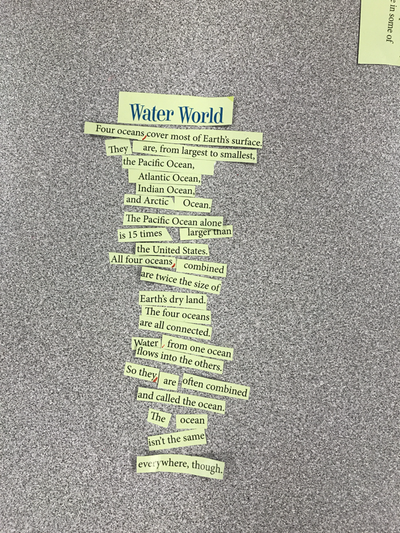 e in some of
Water World
Four oceans cover most of Earth's surface.
They are, from largest to smallest,
the Pacific Ocean,
Atlantic Ocean,
Indian Ocean,
and Arctic Ocean.
The Pacific Ocean alone
is 15 times larger than
the United States.
All four oceans combined
are twice the size of
Earth's dry land.
The four oceans
are all connected.
Water from one ocean
flows into the others.
So they are often combined
and called the ocean.
The ocean
isn't the same
everywhere, though.